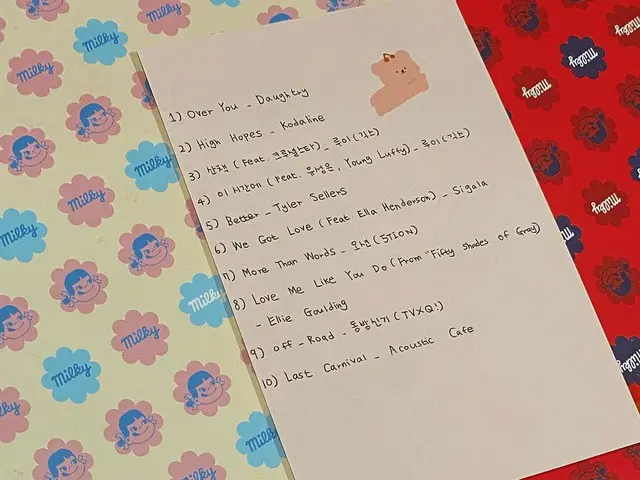 Milky
Milky
Milky
Milky
Milky
Milky
Milky
Milky
Milky
Milky
1) Over You - Daughtry
2) High Hopes - Kodaline
3) 산책 (Feat. 크루셜스타) - 루이(긱스)
4) 이 시간에 (Feat. 유성은, Young Lufty) - 루이(긱스)
5) Better - Tyler Sellers
6) We Got Love (Feat Ella Henderson) - Sigala
7) More Than Words - 오션 (5TION)
8) Love Me Like You Do (From "Fifty Shades of Gray)
- Ellie Goulding
9) Off-Road - 동방신기 (TVXQ!)
10) Last Carnival - Acoustic Cafe
Milky
Milky
Milky
Milky